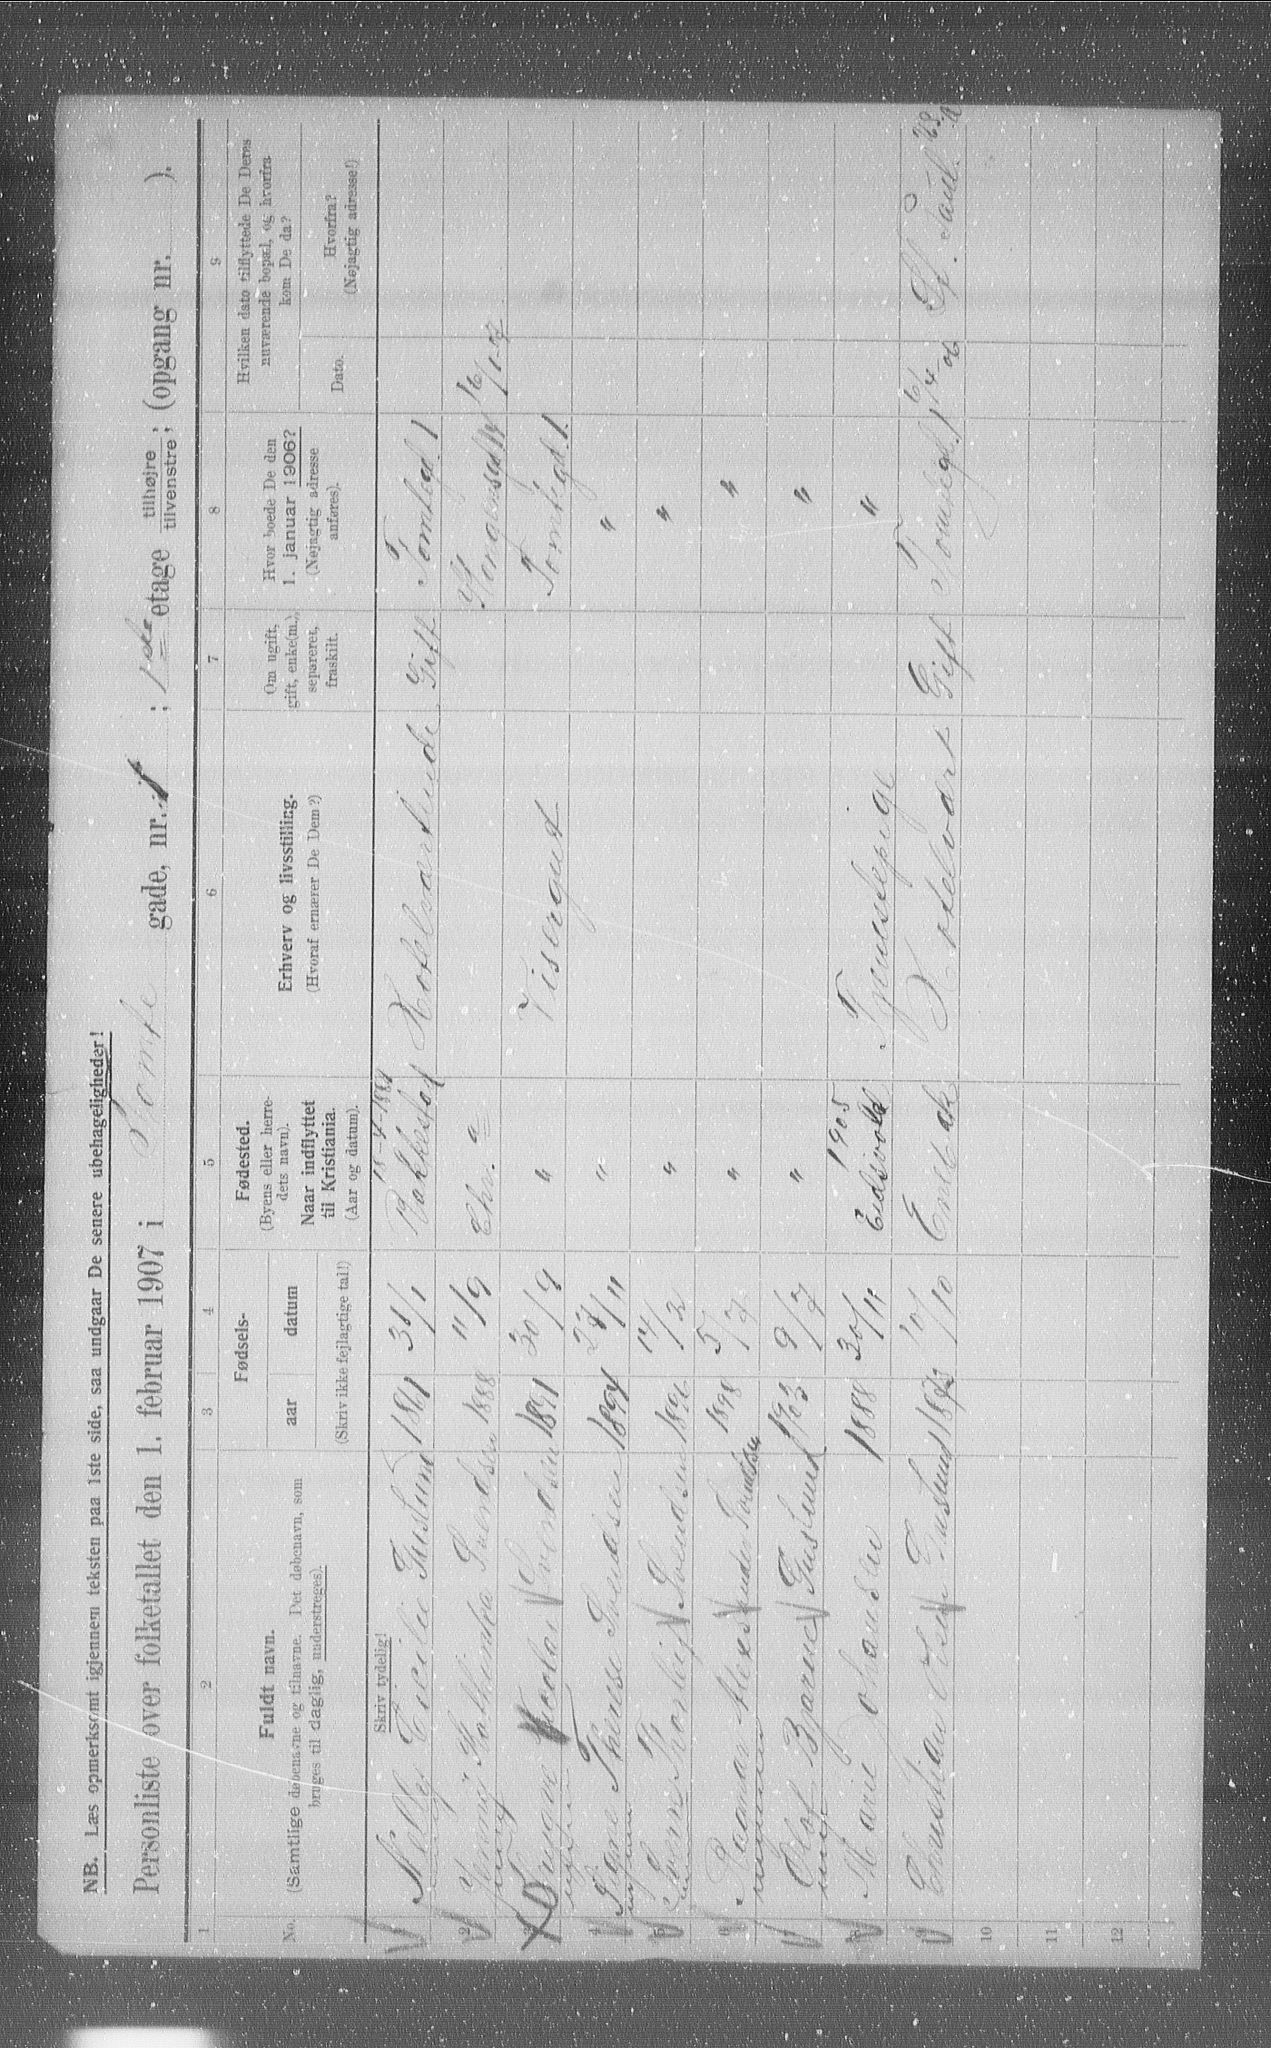 NB. Læs opmerksomt igjennem teksten paa 1ste side, saa undgaar De senere ubehageligheder!
Personliste over folketallet den 1. februar 1907 i Tomte gade, nr. 1 ; 1ste etage tilhøjre tilvenstre ; (opgang nr. ).
1 2 3 4 5 6 7 8 9
No.
Fuldt navn.
(Samtlige døbenavne og tilnavne. Det døbenavn, som
bruges til daglig, understreges).
Fødsels-
aar datum
(Skriv ikke fejlagtige tal!)
Fødested.
(Byens eller herre-
dets navn).
Naar indflyttet
til Kristiania.
(Aar og datum).
Erhverv og livsstilling.
(Hvoraf ernærer De Dem?)
Om ugift,
gift, enke(m.),
separeret,
fraskilt.
Hvor boede De den
1. januar 1906?
(Nøjagtig adresse
anføres).
Hvilken dato tilflyttede De Deres
nuværende bopæl, og hvorfra
kom De da?
Dato.
Hvorfra?
(Nøjagtig adresse!)
Skriv tydelig!
1 Nelly Cicilie 1861 31/1 15-4-1884 Gift Tomtegd. 1
2 Svendsen 1888 11/9 Chr. a 16/1-7
3 Dagny Nicolai Svendsen 1891 30/9 " Visergut Tomtegd. 1.
4 Signe Therese Svendsen 1894 /11 " "
5 Sverre Thorleif Svendsen 1896 14/2 " "
6 Ragnar Alexander Svendsen 1898 5/7 " "
7 Olaf Bjarne 1903 9/7 " "
8 Marie Johansen 1888 30/11 1905 Eidsvold Tjenestepige "
9 Christian /10 Hotelvært Gift 6/4 06
10
11
12